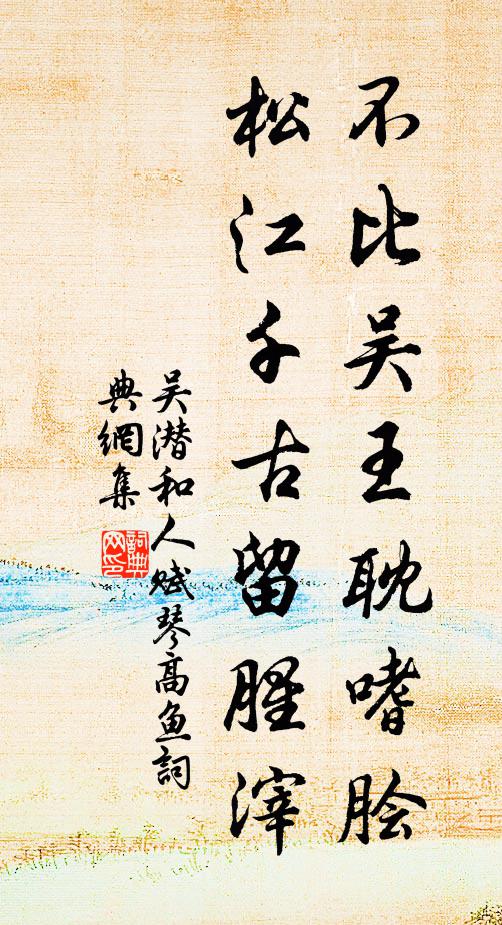 不比吴王耽嗜脍
松江千古留腥滓
吴潜和人赋琴高鱼詞
典網集
詞典网印